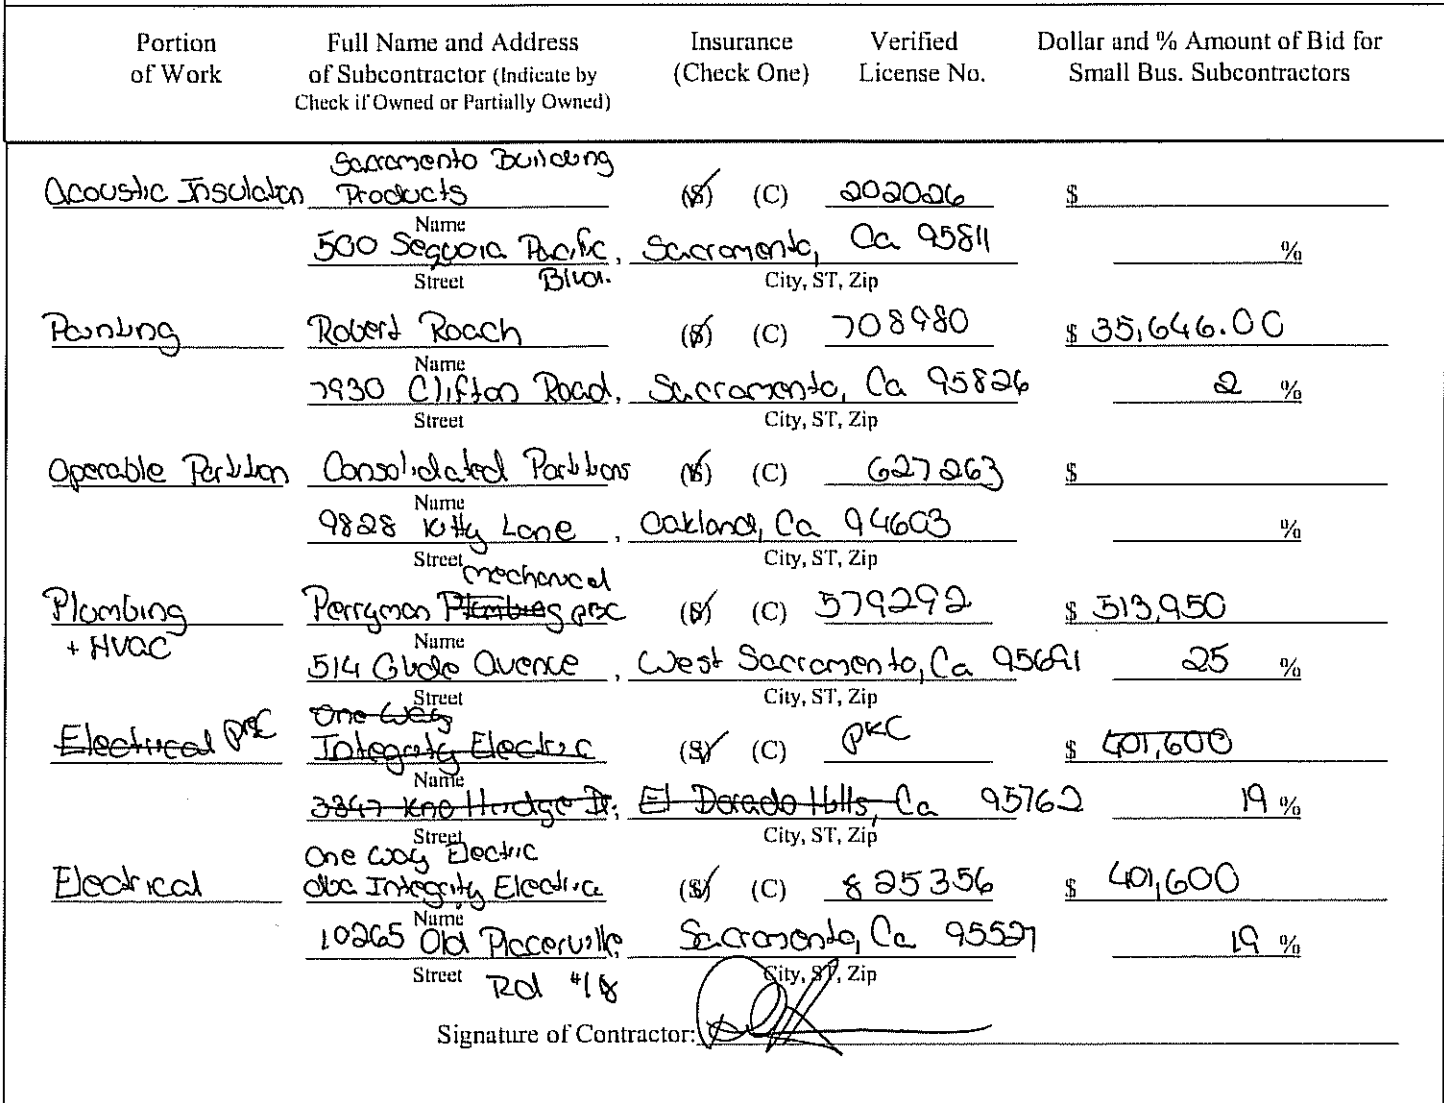 Portion of Work
Full Name and Address of Subcontractor (Indicate by Check if Owned or Partially Owned)
Insurance (Check One)
Verified License No.
Dollar and % Amount of Bid for Small Bus. Subcontractors
Sacramento Building
Acoustic Insulation Products (S) (C) 202026 $
Name
500 Sequoia Pacific, Sacramento, Ca 95811 %
Street Blvd. City, ST, Zip
Painting Robert Roach (S) (C) 708980 $ 35,646.00
Name
7930 Clifton Road, Sacramento, Ca 95826 2 %
Street City, ST, Zip
Operable Partition Consolidated Partitions (S) (C) 627263 $
Name
9828 Kitty Lane, Oakland, Ca 94603 %
Street City, ST, Zip
mechanical
Plumbing Perryman Plumbing (S) (C) 579292 $ 513,950
+ HVAC Name
514 Glide Avenue, West Sacramento, Ca 95691 25 %
Street City, ST, Zip
One Way
Electrical Integrity Electric (S) (C) $ 401,600
Name
3847 Dr. El Dorado Hills, Ca 95762 19 %
Street City, ST, Zip
One Way Electric
Electrical dba Integrity Electric (S) (C) 825356 $ 401,600
Name
10265 Old Placerville, Sacramento, Ca 19 %
Street Rd #18 City, ST, Zip
Signature of Contractor: